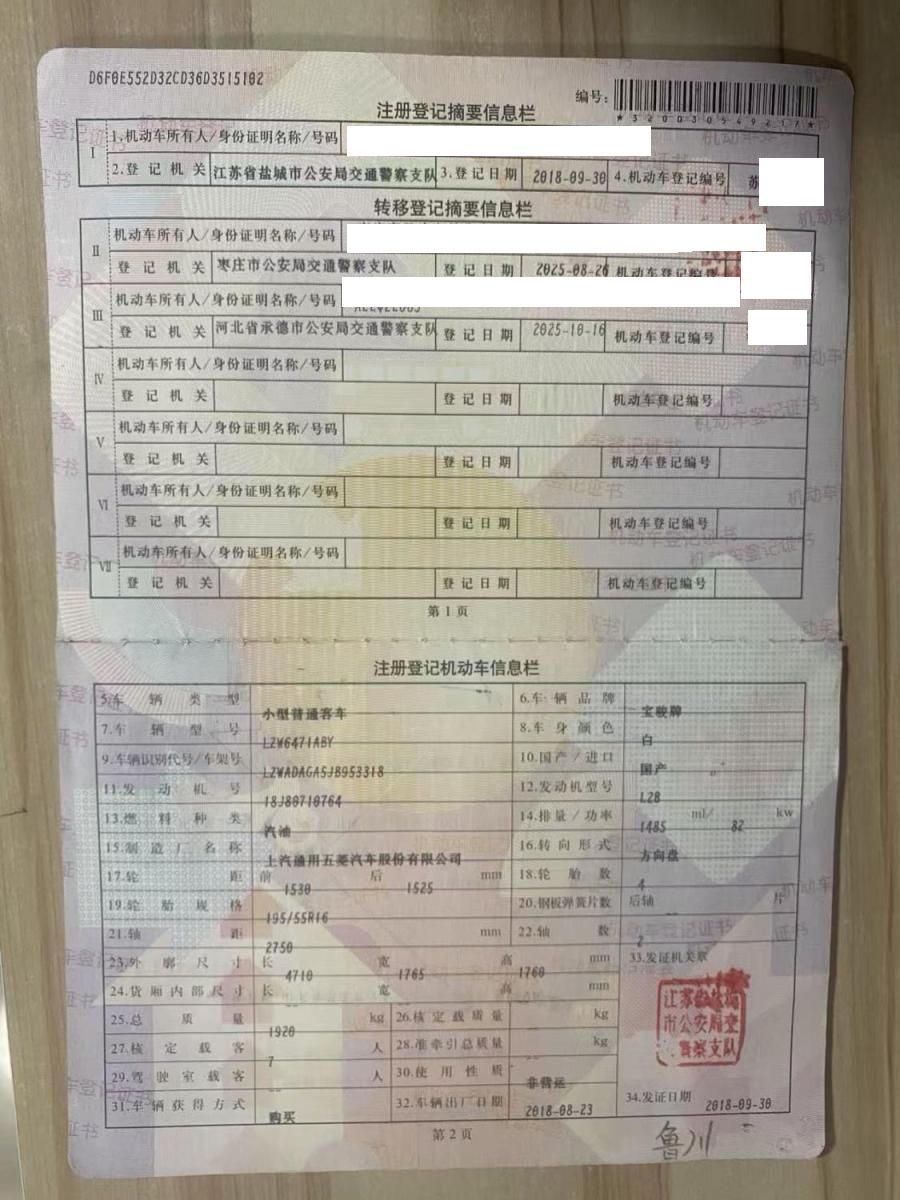 D6F0E552D32CD36D3515102
编号:
*320030549217*
注册登记摘要信息栏
I 1.机动车所有人/身份证明名称/号码
2.登记机关 江苏省盐城市公安局交通警察支队 3.登记日期 2018-09-30 4.机动车登记编号 苏
转移登记摘要信息栏
II 机动车所有人/身份证明名称/号码
登记机关 枣庄市公安局交通警察支队 登记日期 2025-08-26 机动车登记编号
III 机动车所有人/身份证明名称/号码
登记机关 河北省承德市公安局交通警察支队 登记日期 2025-10-16 机动车登记编号
IV 机动车所有人/身份证明名称/号码
登记机关 登记日期 机动车登记编号
V 机动车所有人/身份证明名称/号码
登记机关 登记日期 机动车登记编号
VI 机动车所有人/身份证明名称/号码
登记机关 登记日期 机动车登记编号
VII 机动车所有人/身份证明名称/号码
登记机关 登记日期 机动车登记编号
第1页
注册登记机动车信息栏
5.车辆类型 小型普通客车 6.车辆品牌 宝骏牌
7.车辆型号 LZW6471ABY 8.车身颜色 白
9.车辆识别代号/车架号 LZWADAGA5JB953318 10.国产/进口 国产
11.发动机号 18J80710764 12.发动机型号 L2B
13.燃料种类 汽油 14.排量/功率 1485 ml/ 82 kw
15.制造厂名称 上汽通用五菱汽车股份有限公司 16.转向形式 方向盘
17.轮距 前 1530 后 1525 mm 18.轮胎数 4
19.轮胎规格 195/55R16 20.钢板弹簧片数 后轴 -- 片
21.轴距 2750 mm 22.轴数 2
23.外廓尺寸 长 4710 宽 1765 高 1760 mm 33.发证机关章
24.货厢内部尺寸 长 -- 宽 -- 高 -- mm
江苏省盐城
市公安局交
警察支队
25.总质量 1920 kg 26.核定载质量 -- kg
27.核定载客 7 人 28.准牵引总质量 -- kg
29.驾驶室载客 -- 人 30.使用性质 非营运
31.车辆获得方式 购买 32.车辆出厂日期 2018-08-23 34.发证日期 2018-09-30
第2页
鲁川